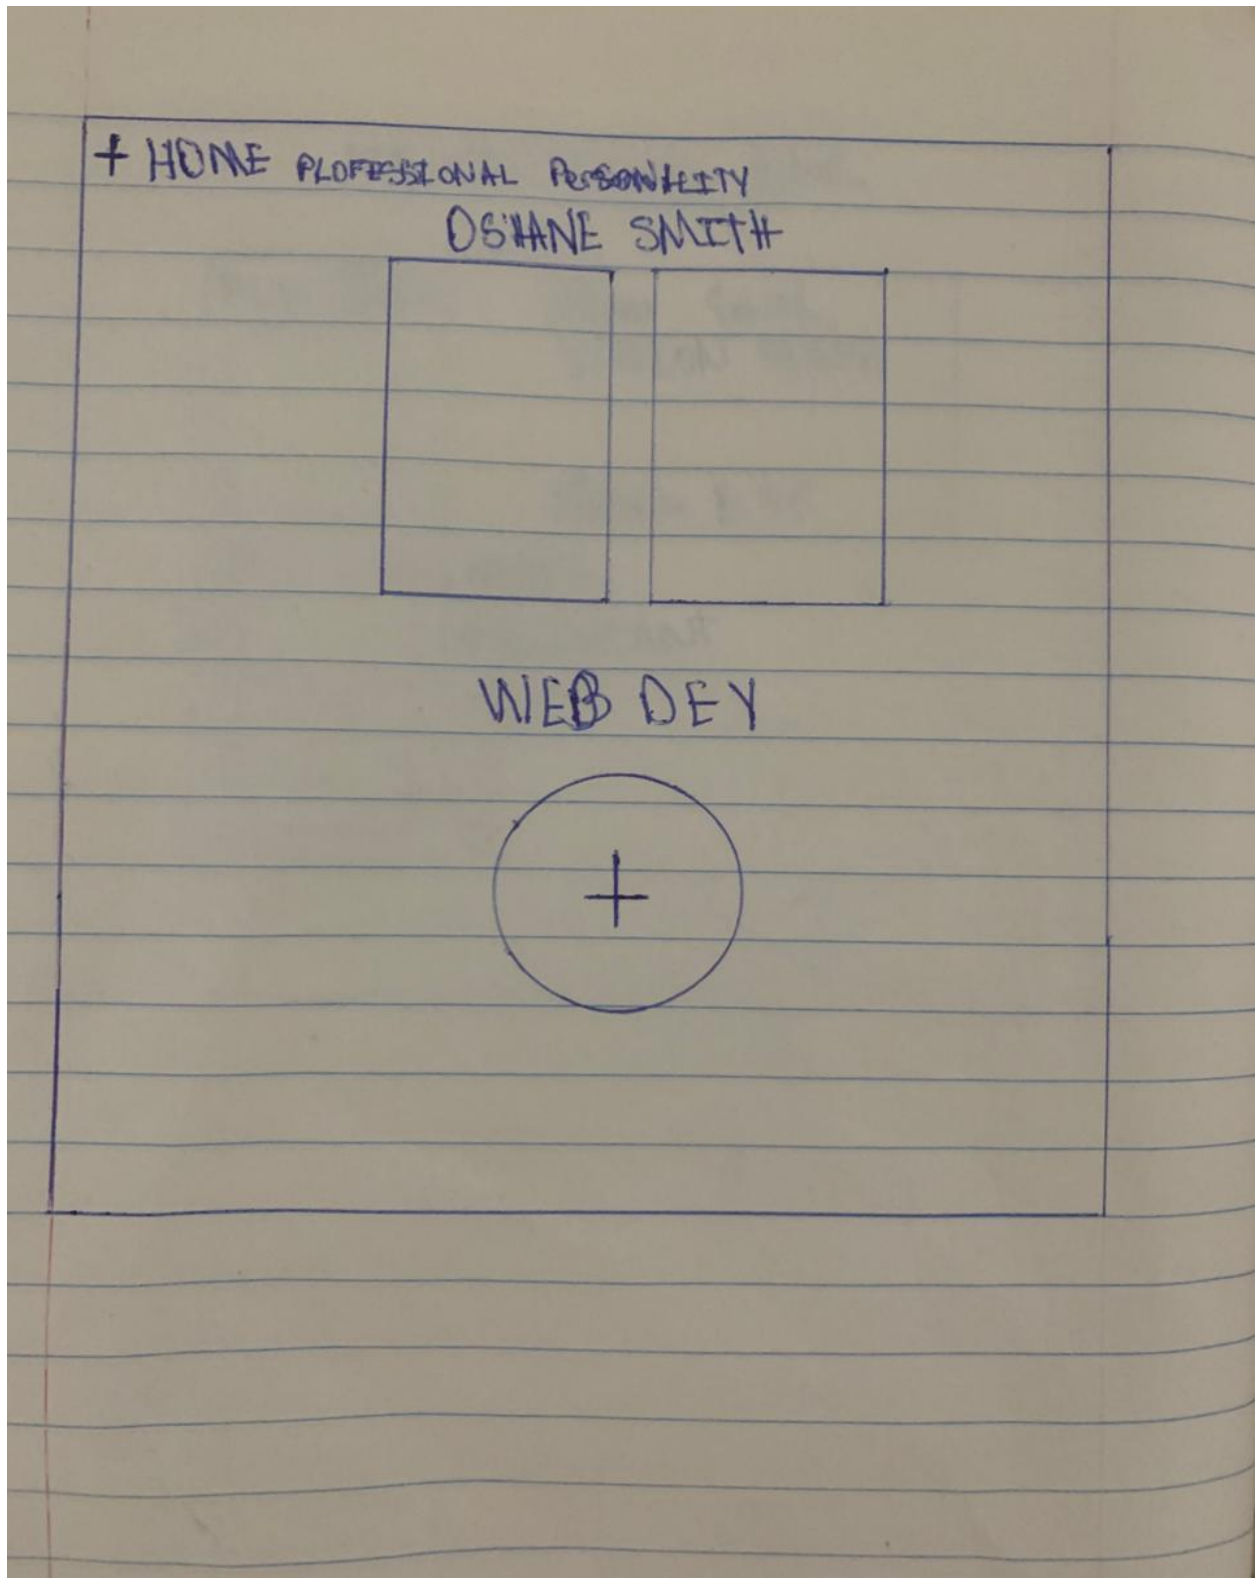 + HOME PLOFESSIONAL PERSONALITY
OSHANE SMITH
WEB DEY
+